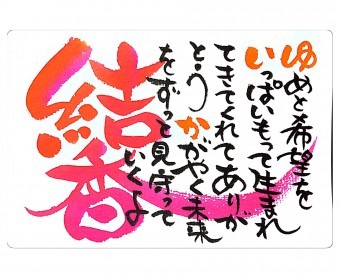 ゆめと希望を
いっぱいもって生まれ
てきてくれてありが
とう かがやく未来
をずっと見守って
いくよ
結香